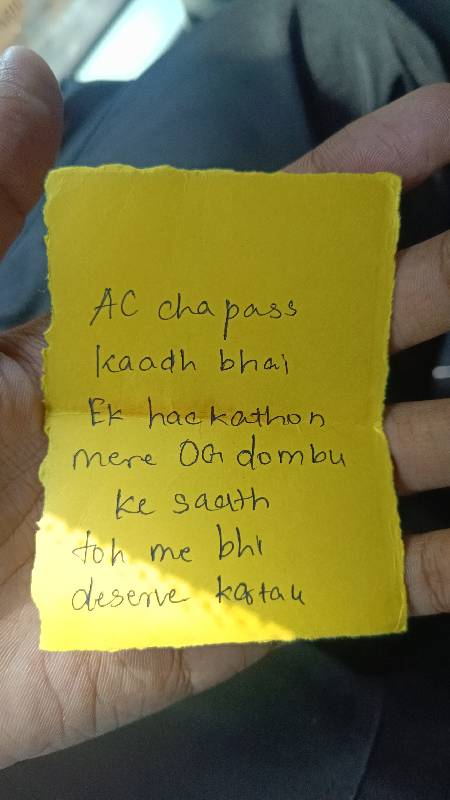 AC cha pass
kaadh bhai
Ek hackathon
mere OG dombu
ke saath
toh me bhi
deserve kartau